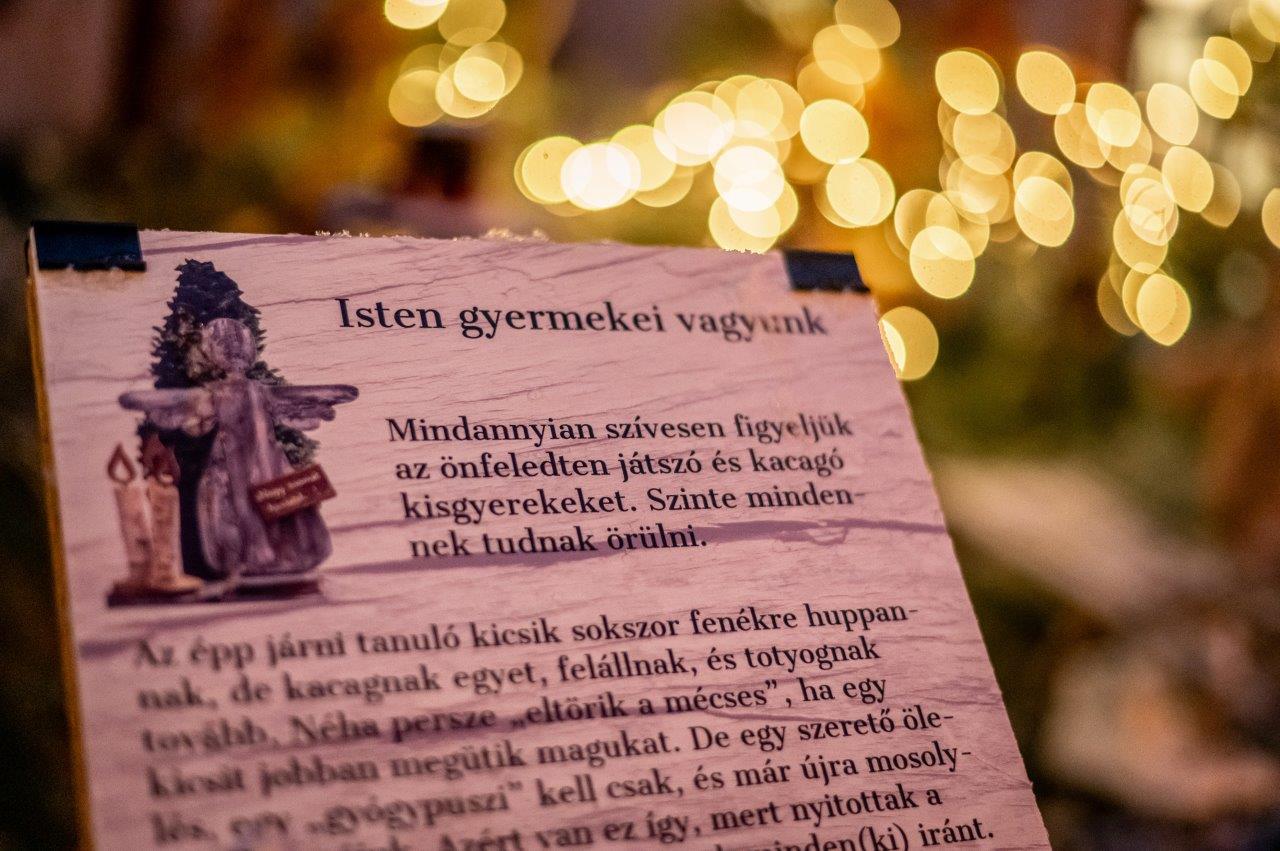 Isten gyermekei vagyunk
Mindannyian szívesen figyeljük
az önfeledten játszó és kacagó
kisgyerekeket. Szinte minden-
nek tudnak örülni.
Az épp járni tanuló kicsik sokszor fenékre huppan-
nak, de kacagnak egyet, felállnak, és totyognak
tovább. Néha persze „eltörik a mécses”, ha egy
kicsit jobban megütik magukat. De egy szerető öle-
lés, egy „gyógypuszi” kell csak, és már újra mosoly-
Azért van ez így, mert nyitottak a
minden(ki) iránt.